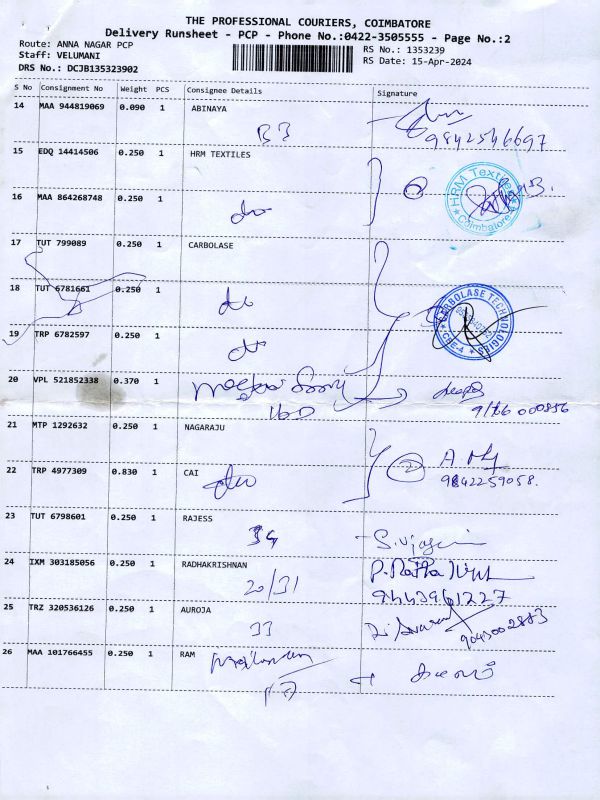 THE PROFESSIONAL COURIERS, COIMBATORE
Delivery Runsheet - PCP - Phone No.:0422-3505555 - Page No.:2
Route: ANNA NAGAR PCP
RS No.: 1353239
Staff: VELUMANI
RS Date: 15-Apr-2024
DRS No.: DCJB135323902
S No Consignment No Weight PCS Consignee Details Signature
14 MAA 944819069 0.090 1 ABINAYA
B3
9842546697
15 EDQ 14414506 0.250 1 HRM TEXTILES
HRM Textiles
Coimbatore
16 MAA 864268748 0.250 1
do
17 TUT 799089 0.250 1 CARBOLASE
18 TUT 6781661 0.250 1
do
CARBOLASE TECHNOLOGIES
CBE-4
19 TRP 6782597 0.250 1
do
20 VPL 521852338 0.370 1
21 MTP 1292632 0.250 1 NAGARAJU
22 TRP 4977309 0.830 1 CAI
do
2
9842259058.
23 TUT 6798601 0.250 1 RAJESS
34
24 IXM 303185056 0.250 1 RADHAKRISHNAN
20/31
9443961227
25 TRZ 320536126 0.250 1 AUROJA
33
9043002883
26 MAA 101766455 0.250 1 RAM